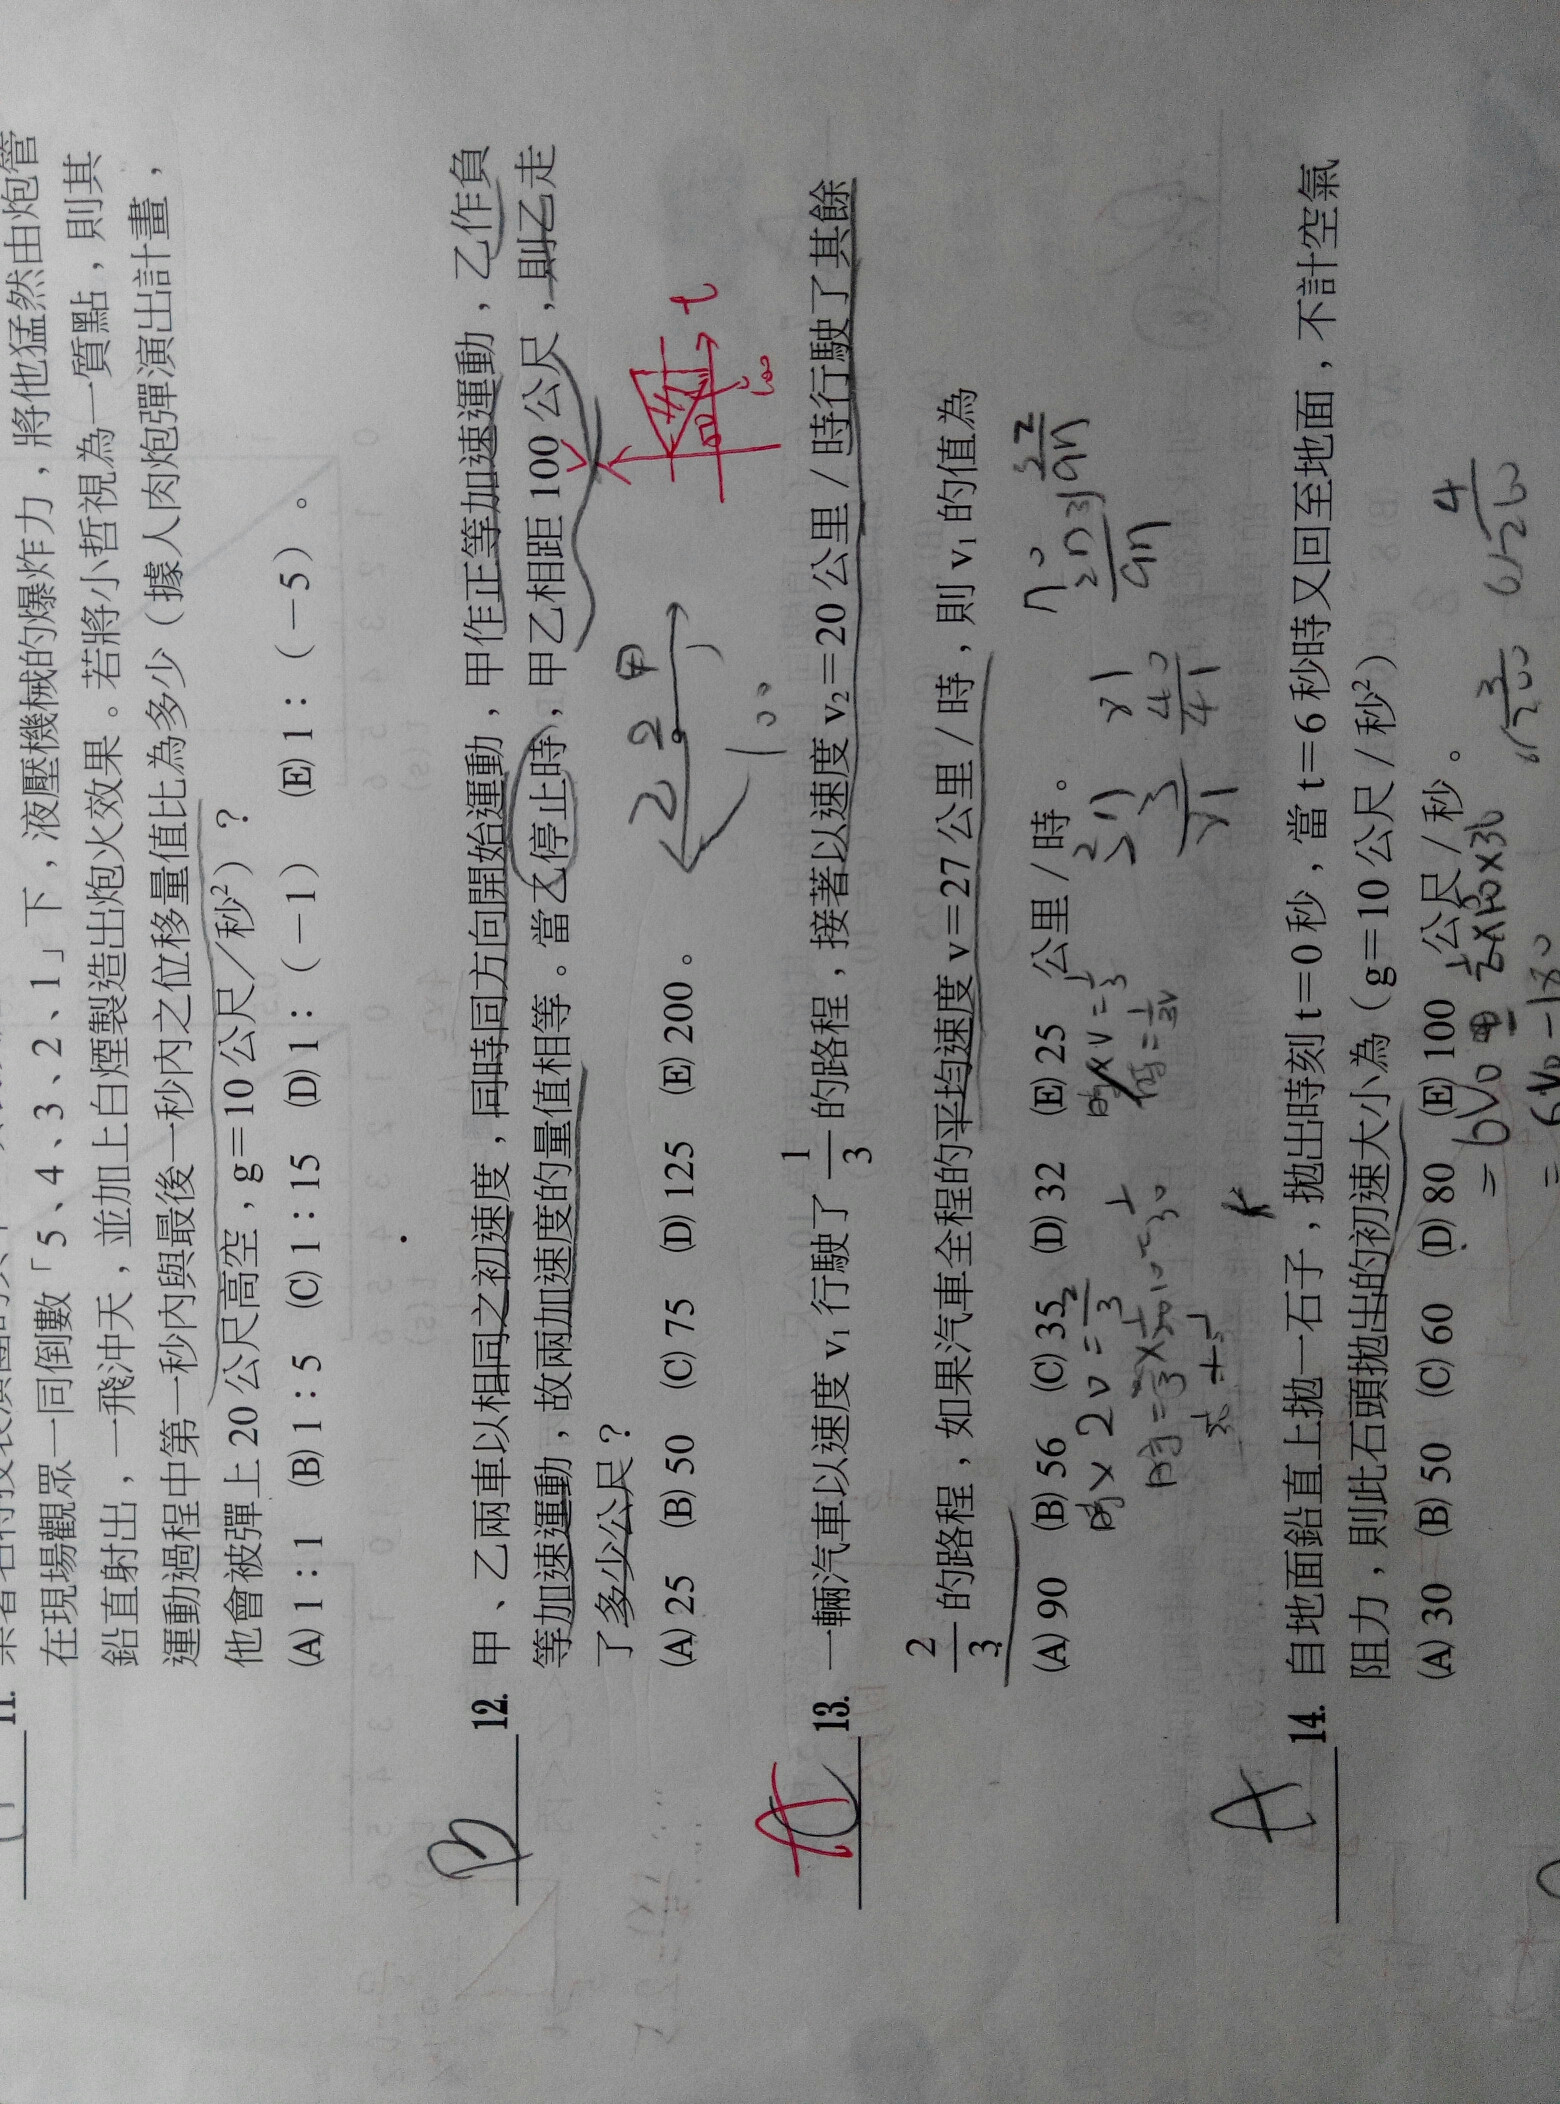 11.
在現場觀眾一同倒數「5、4、3、2、1」下，液壓機械的爆炸力，將他猛然由炮管
鉛直射出，一飛沖天，並加上白煙製造出炮火效果。若將小哲視為一質點，則其
運動過程中第一秒內與最後一秒內之位移量值比為多少（據人肉炮彈演出計畫，
他會被彈上 20 公尺高空，g＝10 公尺／秒²）？
(A) 1：1 (B) 1：5 (C) 1：15 (D) 1：(－1) (E) 1：(－5)。
B
12. 甲、乙兩車以相同之初速度，同時同方向開始運動，甲作正等加速運動，乙作負
等加速運動，故兩加速度的量值相等。當乙停止時，甲乙相距 100 公尺，則乙走
了多少公尺？
(A) 25 (B) 50 (C) 75 (D) 125 (E) 200。
乙 甲
100
t
13. 一輛汽車以速度 v₁ 行駛了 1/3 的路程，接著以速度 v₂＝20 公里／時行駛了其餘
2/3 的路程，如果汽車全程的平均速度 v＝27 公里／時，則 v₁ 的值為
(A) 90 (B) 56 (C) 35 (D) 32 (E) 25 公里／時。
時×20＝2/3
A
14. 自地面鉛直上拋一石子，拋出時刻 t＝0 秒，當 t＝6 秒時又回至地面，不計空氣
阻力，則此石頭拋出的初速大小為（g＝10 公尺／秒²）
(A) 30 (B) 50 (C) 60 (D) 80 (E) 100 公尺／秒。